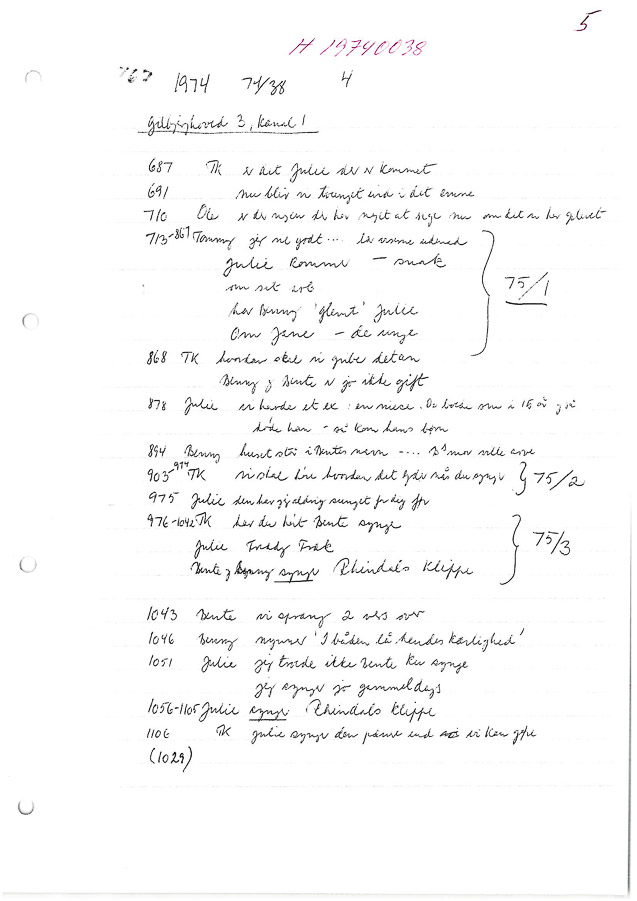 5
H 19740038
1974 74/38 4
3, kanal 1
687 TK er det Julie der er kommet
691 nu blir vi tvunget ind i det emne
710 Ole er der nogen der har noget at sige nu om det vi har
713-867 Tommy godt ....
Julie kommer - snak
om sit
har Benny 'glemt' Julie
Om Jane - de unge
75/1
868 TK hvordan skal vi gribe det an
Benny og Bente er jo ikke gift
878 Julie vi havde et ex : en niece. De boede sm i 15 år og så
døde han - så kom hans børn
894 Benny huset står i Bentes navn -... mor ville arve
903-974 TK vi skal høre hvordan det lyder når du synger
75/2
975 Julie den har jeg aldrig sunget for dig før
976-1042 TK har du hørt Bente synge
Julie
Bente og Benny synger Rhindals Klippe
75/3
1043 Bente vi sprang 2 vers over
1046 Benny nynner 'I båden lå hendes kærlighed'
1051 Julie jeg troede ikke Bente ku synge
jeg synger jo gammeldags
1056-1105 Julie synger Rhindals Klippe
1106 TK Julie synger den pænere end vi kan gøre
(1029)